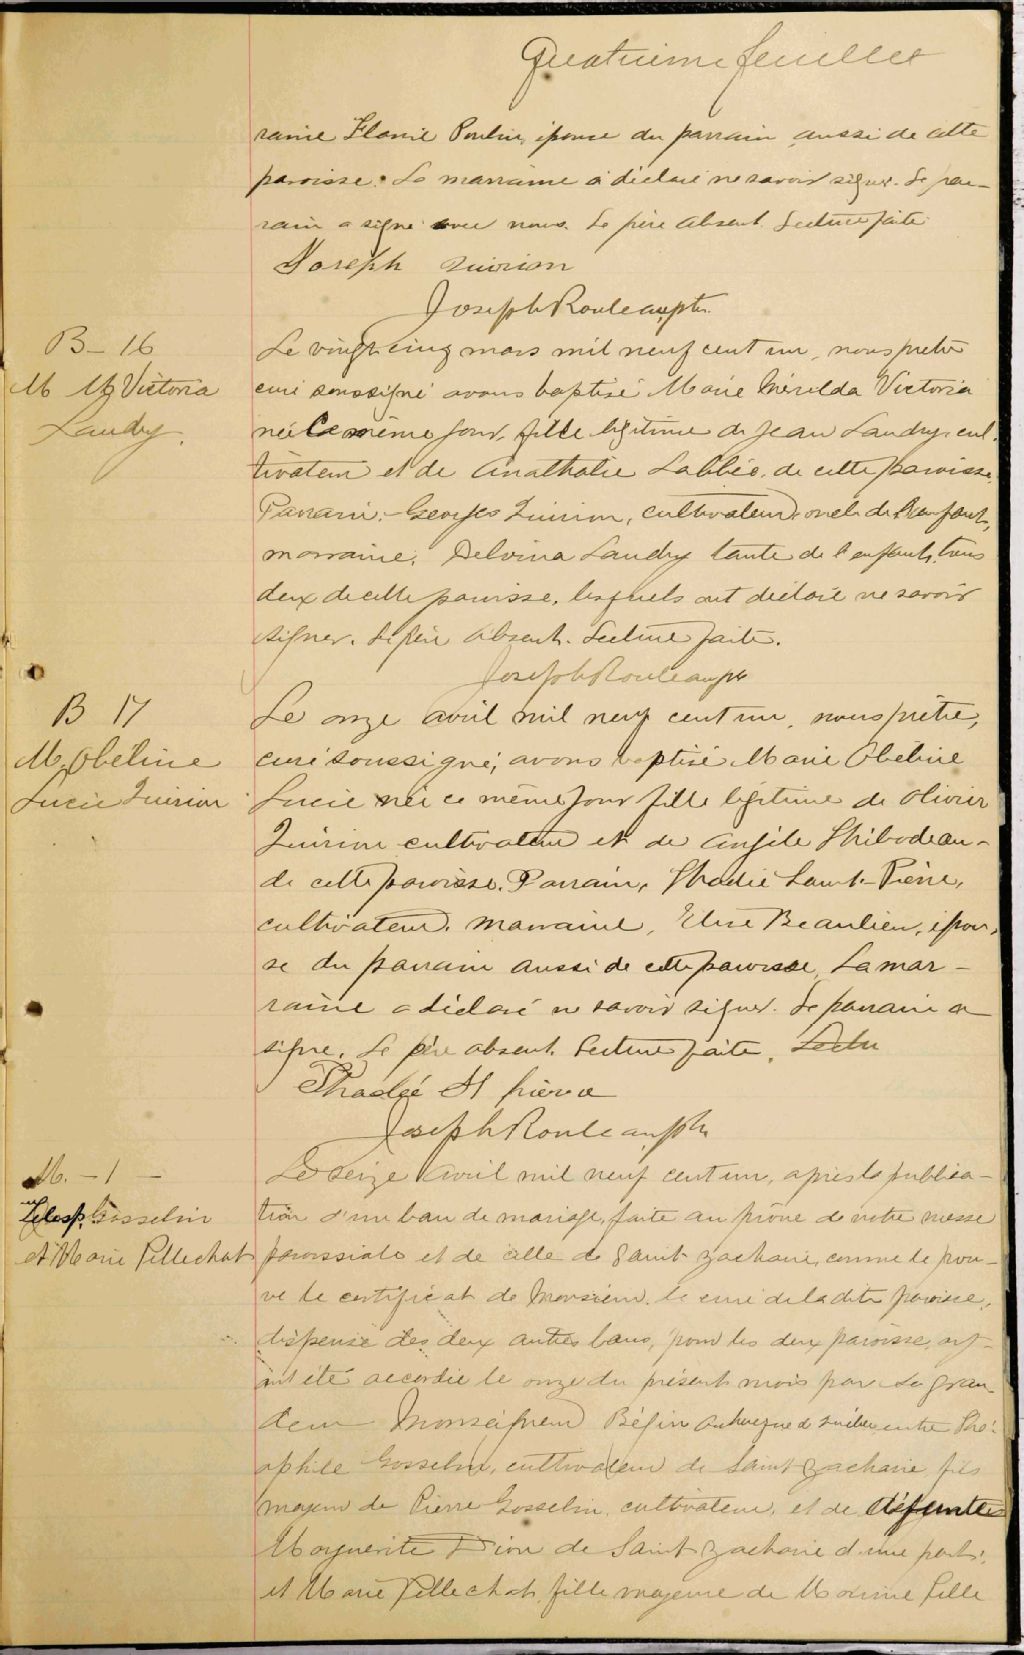 Quatrieme feuillet
raine Flavie Poulin, épouse du parrain aussi de cette
paroisse. La marraine a déclaré ne savoir signer. Le par-
rain a signé avec nous. Le père absent. Lecture faite
Joseph Quirion
Joseph Rouleau, ptre
B - 16
M M Victoria
Landry.
Le vingt cinq mars mil neuf cent un, nous prêtre
curé soussigné avons baptisé Marie Mérilda Victoria
née le même jour, fille légitime de Jean Landry, cul-
tivateur et de Anathalie Labbée, de cette paroisse.
Parrain, Georges Quirion, cultivateur, oncle de l'enfant,
marraine, Delvina Landry tante de l'enfant, tous
deux de cette paroisse, lesquels ont déclaré ne savoir
signer. Le père absent. Lecture faite.
Joseph Rouleau, ptre
B 17
M. Obéline
Lucie Quirion
Le onze avril mil neuf cent un, nous prêtre,
curé soussigné, avons baptisé Marie Obéline
Lucie née ce même jour fille légitime de Olivier
Quirion cultivateur et de Angèle Thibodeau-
de cette paroisse. Parrain, Thadée Saint-Pierre,
cultivateur, marraine, Elise Beaulieu, épou-
se du parrain aussi de cette paroisse, La mar-
raine a déclaré ne savoir signer. Le parrain a
signé. Le père absent. Lecture faite.
Thadée St pierre
Joseph Rouleau, ptre
M. - 1 -
Gosselin
et Marie Pellechat
Le seize avril mil neuf cent un, après la publica-
tion d'un ban de mariage, faite au prône de notre messe
paroissiale et de celle de Saint Zacharie, comme le prou-
ve le certificat de Monsieur le curé de la dite paroisse,
dispense des deux autres bans, pour les deux paroisse, ay-
ant été accordée le onze du présent mois par Sa Gran-
deur Monseigneur Bégin archevêque de Québec, entre Thé-
ophile Gosselin, cultivateur de Saint Zacharie, fils
majeur de Pierre Gosselin, cultivateur, et de défunte
Marguerite Dion de Saint Zacharie d'une part;
et Marie Pellechat, fille majeure de Maxime Pelle